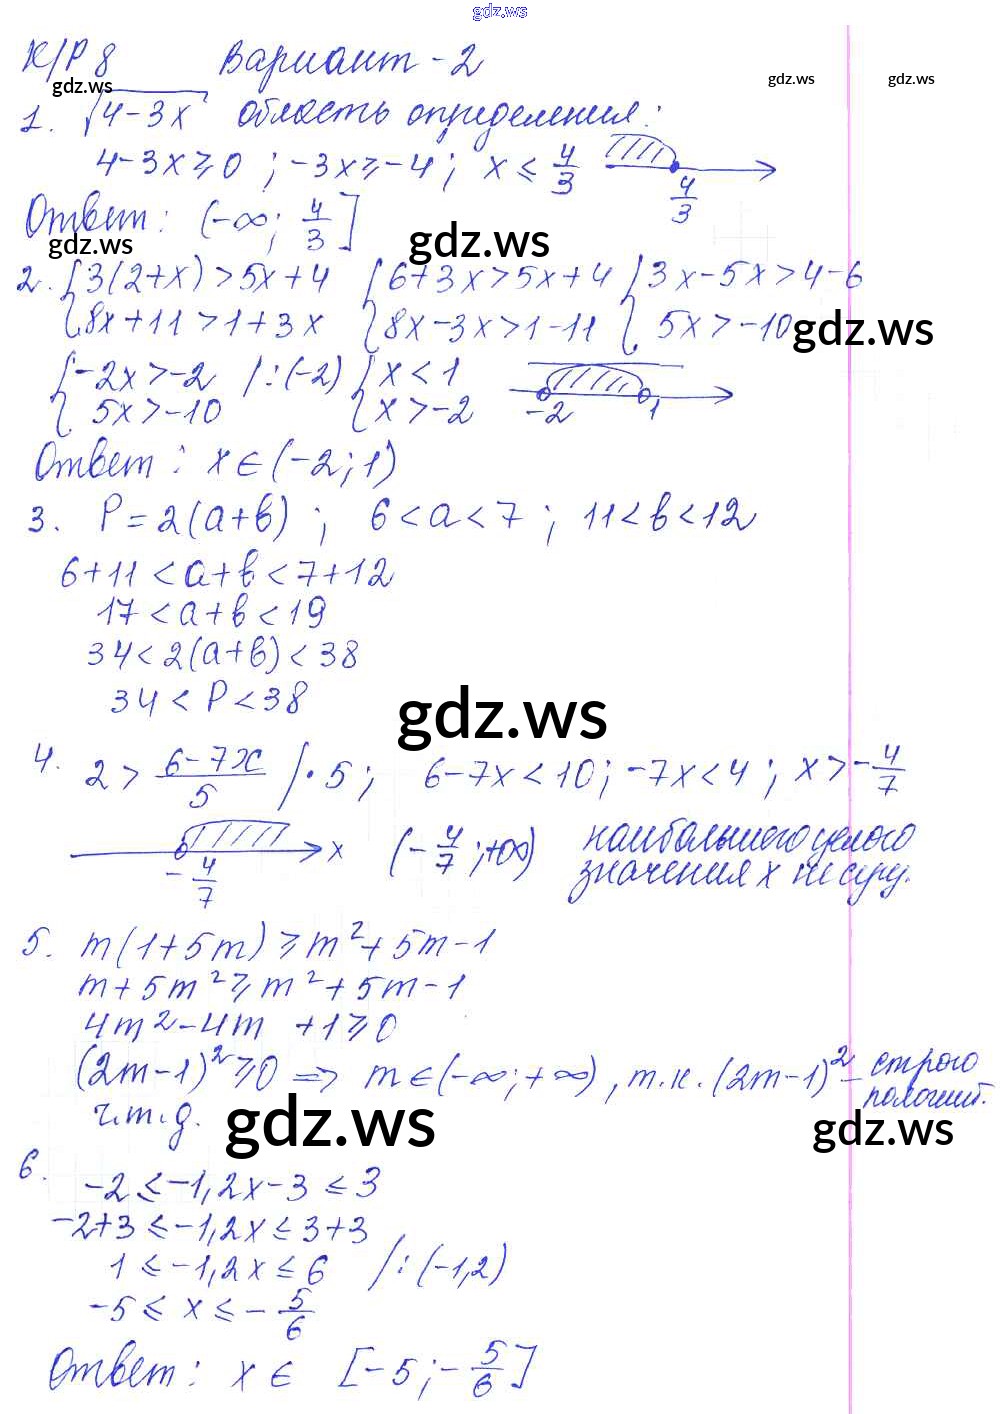 gdz.ws
К/Р 8 Вариант - 2
gdz.ws gdz.ws gdz.ws
1. √4-3x область определения:
4-3x ≥ 0 ; -3x ≥ -4 ; x ≤ 4/3
4/3
Ответ: (-∞; 4/3]
gdz.ws gdz.ws
2. {3(2+x) > 5x+4 {6+3x > 5x+4 {3x-5x > 4-6
{8x+11 > 1+3x {8x-3x > 1-11 { 5x > -10
gdz.ws
{-2x > -2 /:(-2) {x < 1
{ 5x > -10 {x > -2 -2 1
Ответ: x ∈ (-2; 1)
3. P = 2(a+b) ; 6 < a < 7 ; 11 < b < 12
6+11 < a+b < 7+12
17 < a+b < 19
34 < 2(a+b) < 38
34 < P < 38
gdz.ws
4. 2 > 6-7x/5 /·5 ; 6-7x < 10 ; -7x < 4 ; x > -4/7
-4/7 x (-4/7 ; +∞) наибольшего целого
значения x не сущ.
5. m(1+5m) ≥ m²+5m-1
m+5m² ≥ m²+5m-1
4m²-4m +1 ≥ 0
(2m-1)² ≥ 0 => m ∈ (-∞; +∞), т.к. (2m-1)² - строго
полоמит.
ч.т.д.
gdz.ws gdz.ws
6. -2 ≤ -1,2x-3 ≤ 3
-2+3 ≤ -1,2x ≤ 3+3
1 ≤ -1,2x ≤ 6 /:(-1,2)
-5 ≤ x ≤ -5/6
Ответ: x ∈ [-5; -5/6]